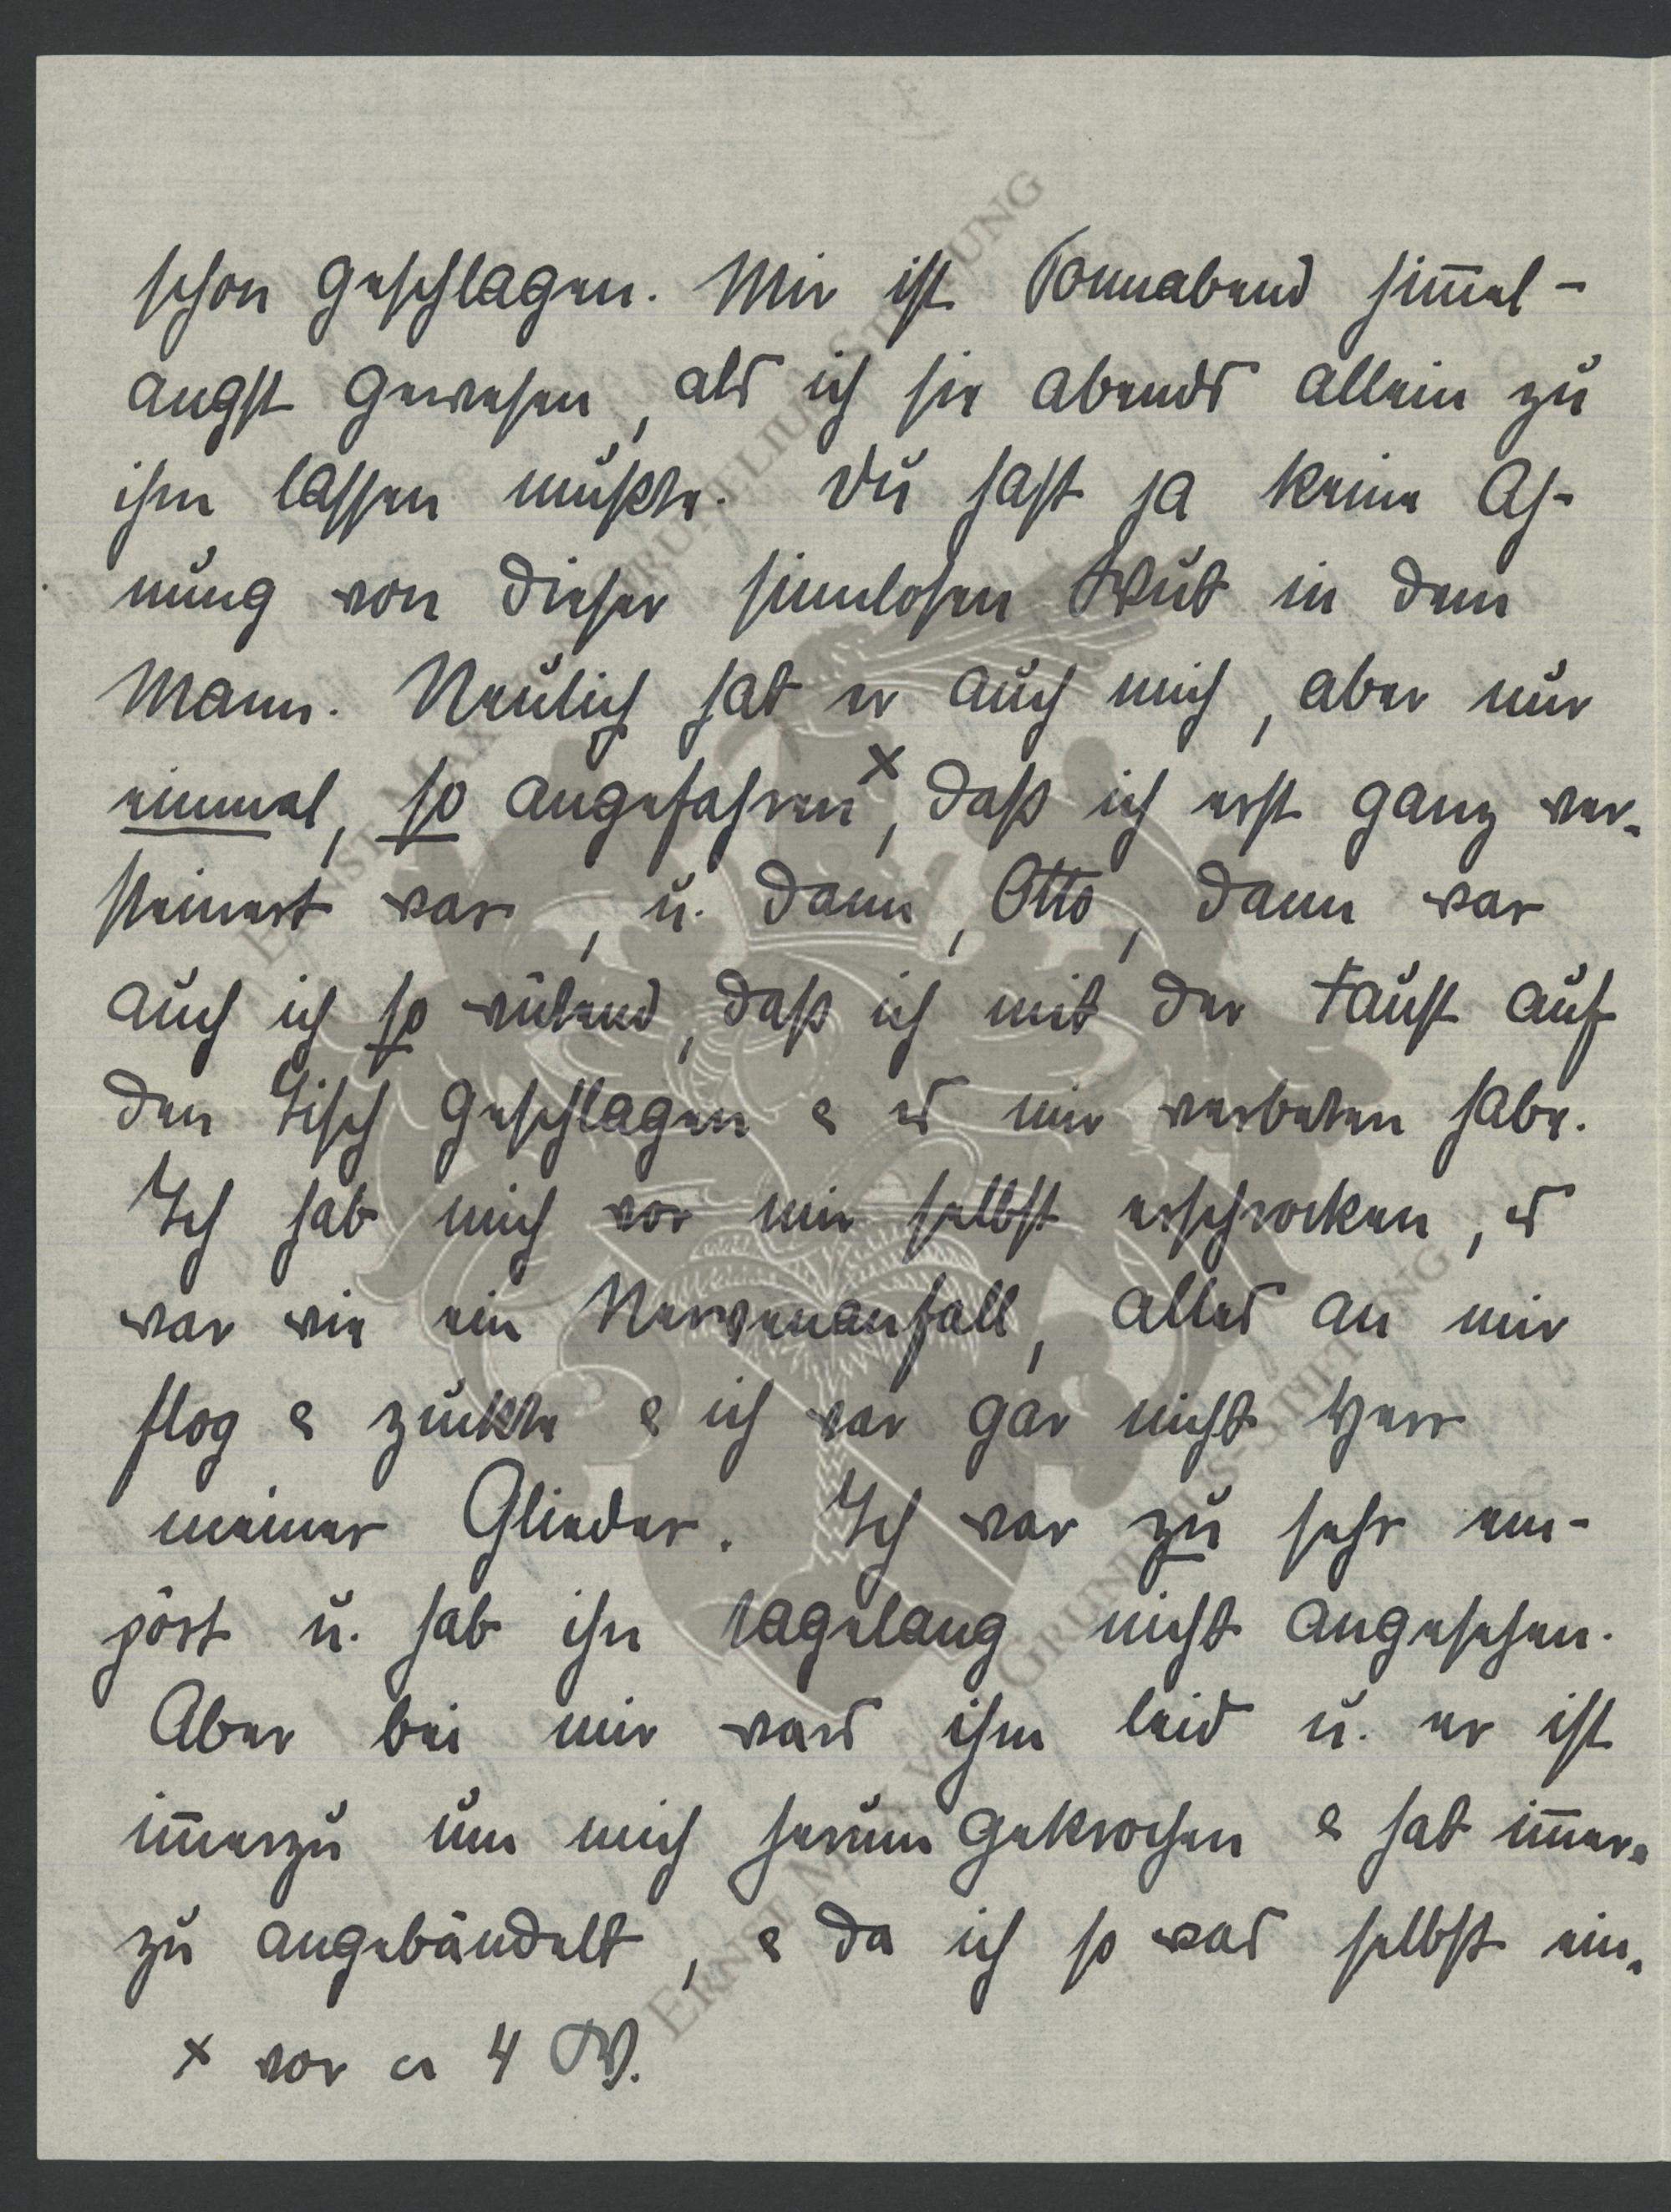 schon geschlagen. Mir ist Sonnabend him̄el-
angst gewesen, als ich sie abends allein zu
ihm lassen mußte. Du hast ja keine Ah-
nung von dieser sinnlosen Wut in dem
Mann. Neulich hat er auch mich, aber nur
einmal, so angefahren ˣ, daß ich erst ganz ver-
steinert war, u. dann, Otto, dann war
auch ich so wütend, daß ich mit der Faust auf
den Tisch geschlagen & es mir verbeten habe.
Ich hab mich vor mir selbst erschrocken, es
war wie ein Nervenanfall, alles an mir
flog & zuckte & ich war gar nicht Herr
meiner Glieder. Ich war zu sehr em-
pört u. hab ihn tagelang nicht angesehen.
Aber bei mir wards ihm leid u. er ist
im̄erzu um mich herum gekrochen & hat im̄er-
zu angebändelt, & da ich so was selbst ein-
x vor ca 4 W.
ERNST MAX VON GRUNELIUS-STIFTUNG
ERNST MAX VON GRUNELIUS-STIFTUNG